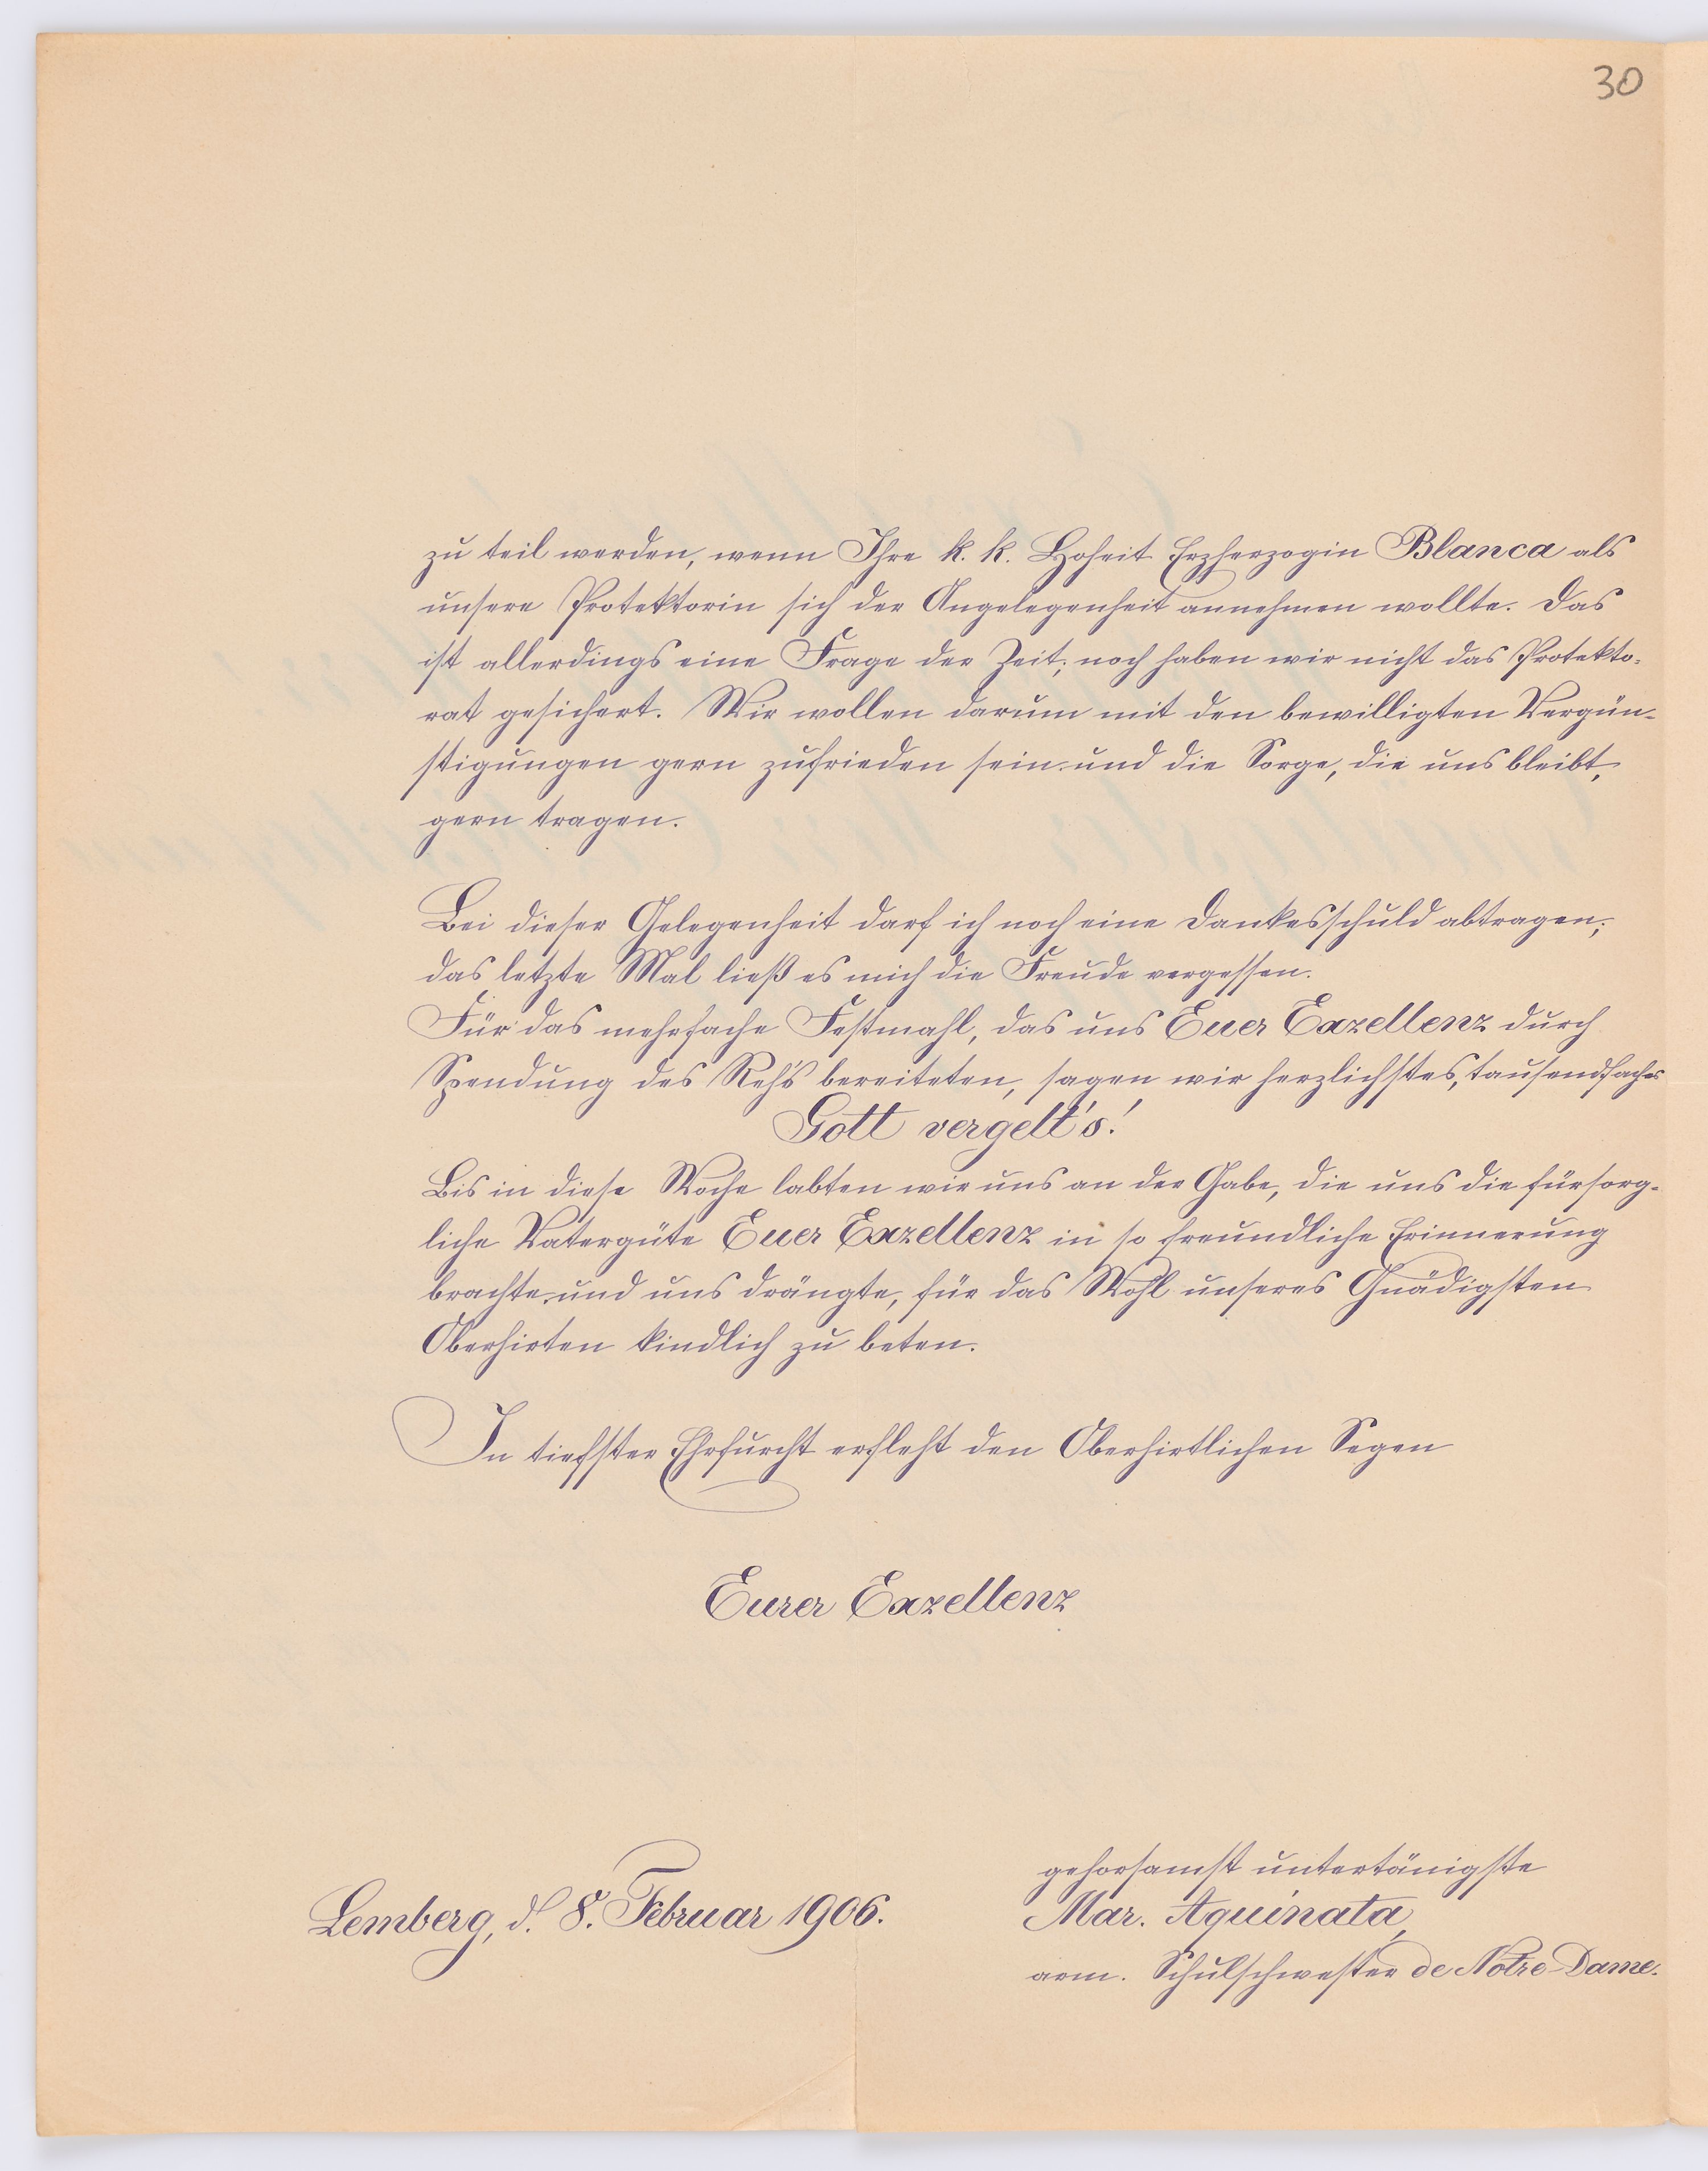 30
zu teil werden, wenn Ihre k. k. Hoheit Erzherzogin Blanca als
unsere Protektorin sich der Angelegenheit annehmen wollte. Das
ist allerdings eine Frage der Zeit; noch haben wir nicht das Protekto-
rat gesichert. Wir wollen darum mit den bewilligten Vergün-
stigungen gern zufrieden sein und die Sorge, die uns bleibt,
gern tragen.
Bei dieser Gelegenheit darf ich noch eine Dankesschuld abtragen;
das letzte Mal ließ es mich die Freude vergessen.
Für das mehrfache Festmahl, das uns Euer Exzellenz durch
Spendung des Reh's bereiteten, sagen wir herzlichstes, tausendfaches
Gott vergelt's!
Bis in diese Woche labten wir uns an der Gabe, die uns die fürsorg-
liche Vatergüte Euer Exzellenz in so freundliche Erinnerung
brachte und uns drängte, für das Wohl unseres Gnädigsten
Oberhirten kindlich zu beten.
In tiefster Ehrfurcht erfleht den Oberhirtlichen Segen
Eurer Exzellenz
gehorsamst untertänigste
Lemberg, d. 8. Februar 1906.
Mar. Aquinata,
arm. Schulschwester de Notre-Dame.